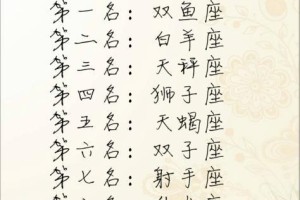 第一名：双鱼座
第二名：白羊座
第三名：天秤座
第四名：狮子座
第五名：天蝎座
第六名：双子座
第七名：射手座